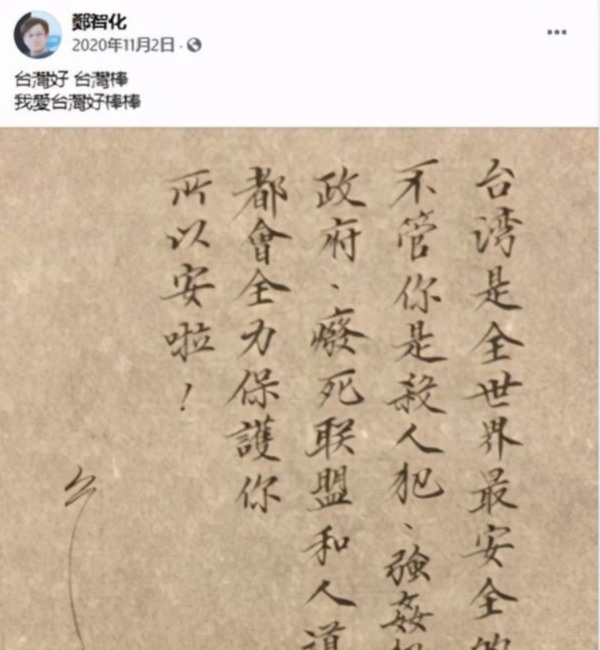 鄭智化
2020年11月2日
台灣好 台灣棒
我愛台灣好棒棒
台湾是全世界最安全的
不管你是殺人犯、強姦犯
政府、癈死联盟和人道
都會全力保護你
所以安啦！